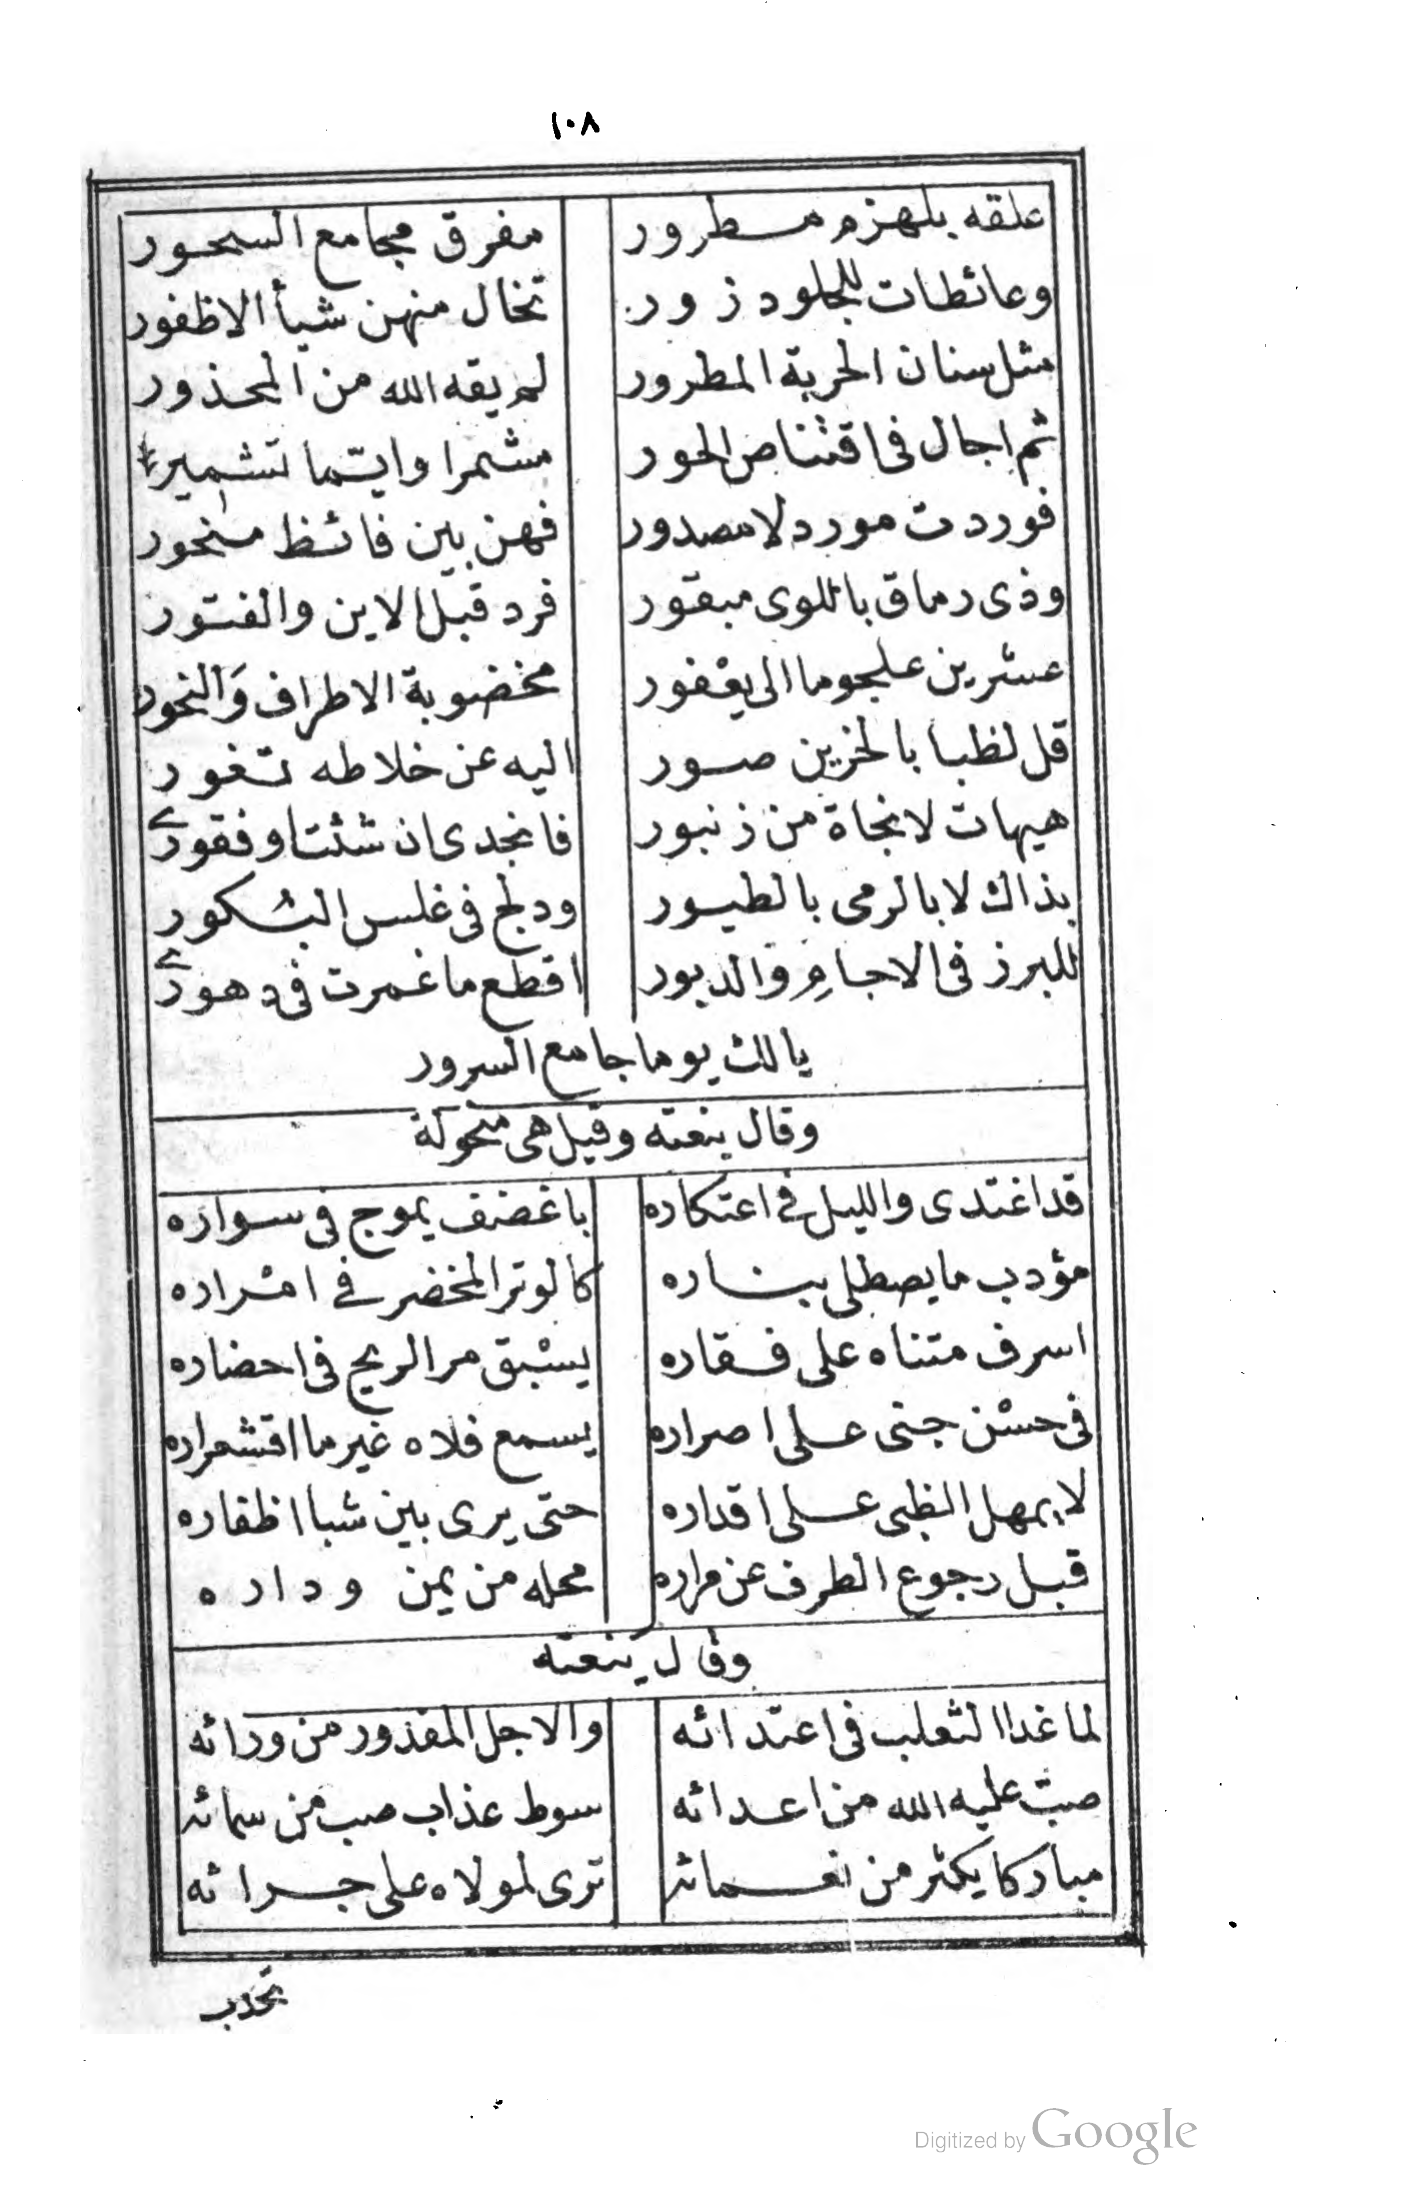 ١٠٨
علقه بلهزم مطرور مفرق مجامع السحور
وعائطات للجلود زور تخال منهن شبأ الاظفور
مثل سنان الحربة المطرور لم يقه الله من المحذور
ثم اجال فى اقتناص الحور مشمرا وايتما تشمير
فوردت مورد لا مصدور فهن بين فائظ منحور
وذى رماق باللوى مبقور فرد قبل الاين والفتور
عشرين علجوما الى يعفور مخضوبة الاطراف والنحور
قل لظبا بالخزين صور اليه عن خلاطه تغور
هيهات لا نجاة من زنبور فانجدى ان شئت او فغورى
بذاك لا بالرمى بالطيور ودلج فى غلس البكور
للبرز فى الاجام والدبور اقطع ما غمرت فى دهورى
يالك يوما جامع السرور
وقال ينعته وقيل هى منحولة
قد اغتدى والليل فى اعتكاره باغضف يموج فى سواره
مؤدب ما يصطلى بناره كالوتر المخضر فى امراره
اسرف متناه على فقاره يسبق مر الريح فى احضاره
فى حسن جنى على اصراره يسمع فلاه غير ما اقشعراره
لا يمهل الظبى على اقداره حتى يرى بين شبا اظفاره
قبل رجوع الطرف عن مراره محله من يمن وداره
وقال ينعته
لما غدا الثعلب فى اعتدائه والاجل المقدور من ورائه
صب عليه الله من اعدائه سوط عذاب صب من سمائه
مباركا يكثر من نعمائه ترى لمولاه على جرائه
تحدب
Digitized by Google